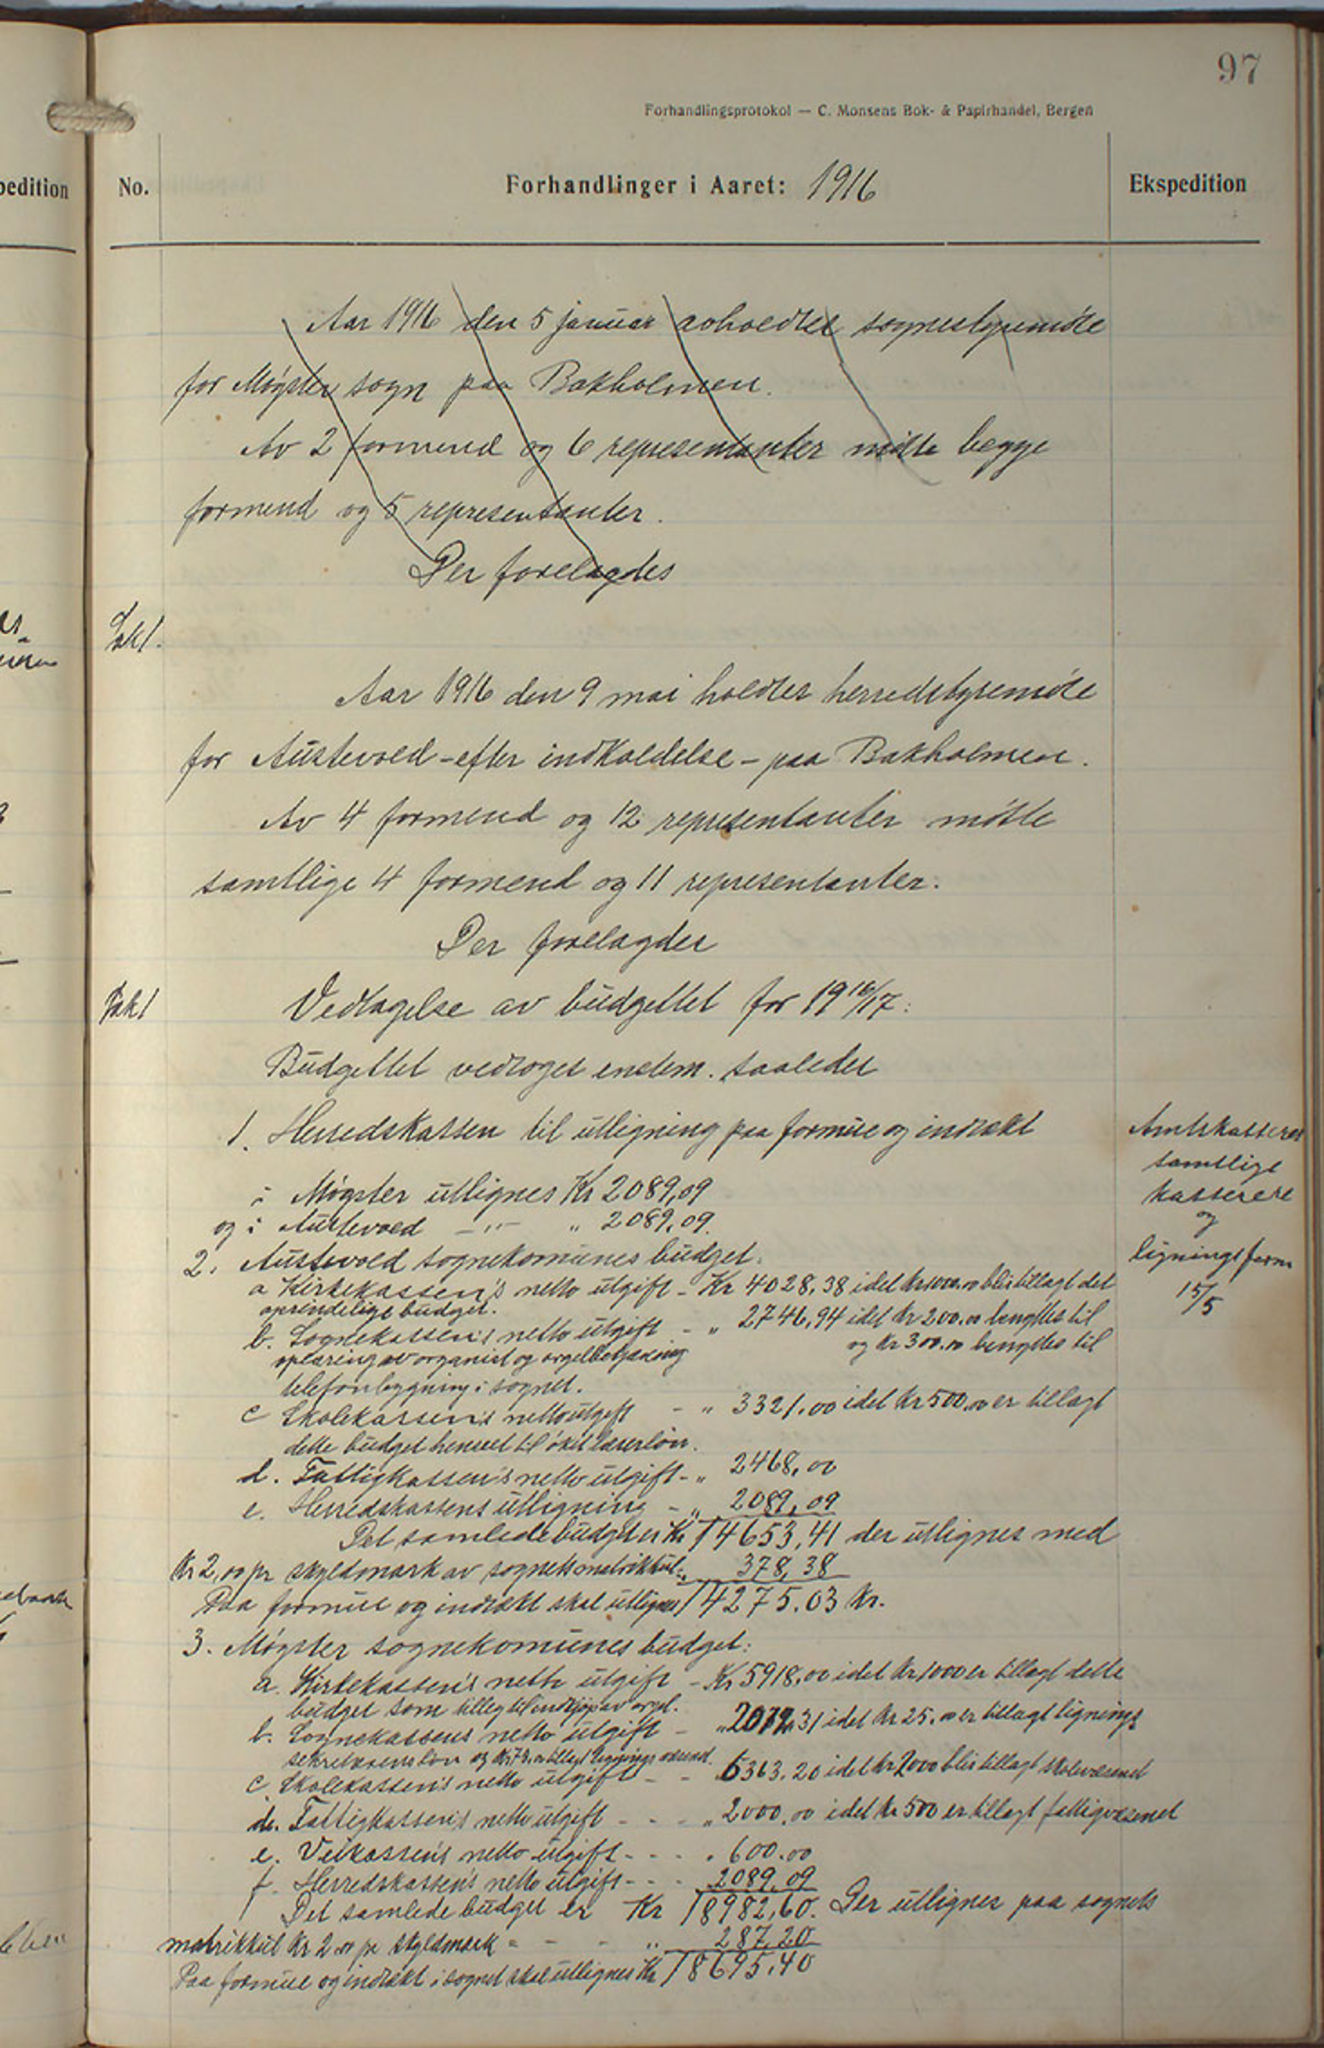 97
Forhandlingsprotokol — C. Monsens Bok- & Papirhandel, Bergen
pedition
No.
Forhandlinger i Aaret: 1916
Ekspedition
Aar 1916 den 5 januar avholdtes sognestyremöte
for Møgster sogn paa Bakholmen.
Av 2 formend og 6 representanter mötte begge
formend og 5 representanter.
Der forelagdes
Sak 1.
Aar 1916 den 9 mai holdtes herredstyremöte
for Austevold - efter indkaldelse - paa Bakholmen.
Av 4 formend og 12 representanter mötte
samtlige 4 formend og 11 representanter.
Der forelagdes
Sak 1
Vedtagelse av büdgettet for 1916/17:
Büdgettet vedtoges enstem. saaledes
1. Herredskassen til utligning paa formue og indtækt
i Møgster utlignes Kr 2089,09
og i Austevold -"- " 2089,09.
Amtskasserer
samtlige
kasserere
og
ligningsform
15/5
2. Austevold sognekomunes büdget.
a Kirkekassen's netto utgift - Kr 4028,38 idet Kr 1000.00 blir tillagt det
oprindelige budget.
b. Sognekassen's netto utgift - " 2746,94 idet Kr 200.00 benyttes til
oplæring av organist og orgelbetjening og Kr 300.00 benyttes til
telefonbygning i sognet.
c Skolekassen's netto utgift - " 3321.00 idet Kr 500.00 er tillagt
dette budget hensees til öket lærerlön.
d. Fattigkassen's netto utgift - " 2468,00
e. Herredskassens utligning - " 2089,09
Det samlede budget er Kr 14653,41 der utlignes med
Kr 2,00 pr skyldmark av sognets matrikkul - " 378,38
Paa formue og indtækt skal utlignes 14275.03 Kr.
3. Møgster sognekomunes büdget:
a. Kirkekassen's netto utgift - Kr 5918,00 idet Kr 1000 er tillagt dette
budget som tilleg til indkjøp av orgel.
b. Sognekassens netto utgift - " 2012.31 idet Kr 25.00 er tillagt lignings
sekretærens løn og Kr 73.00 tillagt lignings
c. Skolekassen's netto utgift - - 6363.20 idet Kr 2000 blir tillagt skolevæsenet
d. Fattigkassen's netto utgift - - - " 2000.00 idet Kr 500 er tillagt fattigvæsenet
e. Veikassen's netto utgift - - - " 600.00
f. Herredskassen's netto utgift - - - 2089,09
Det samlede budget er Kr 18982,60. Der utlignes paa sognets
matrikkul Kr 2.00 pr skyldmark - - - " 287.20
Paa formue og indtækt i sognet skal utlignes Kr 18695.40